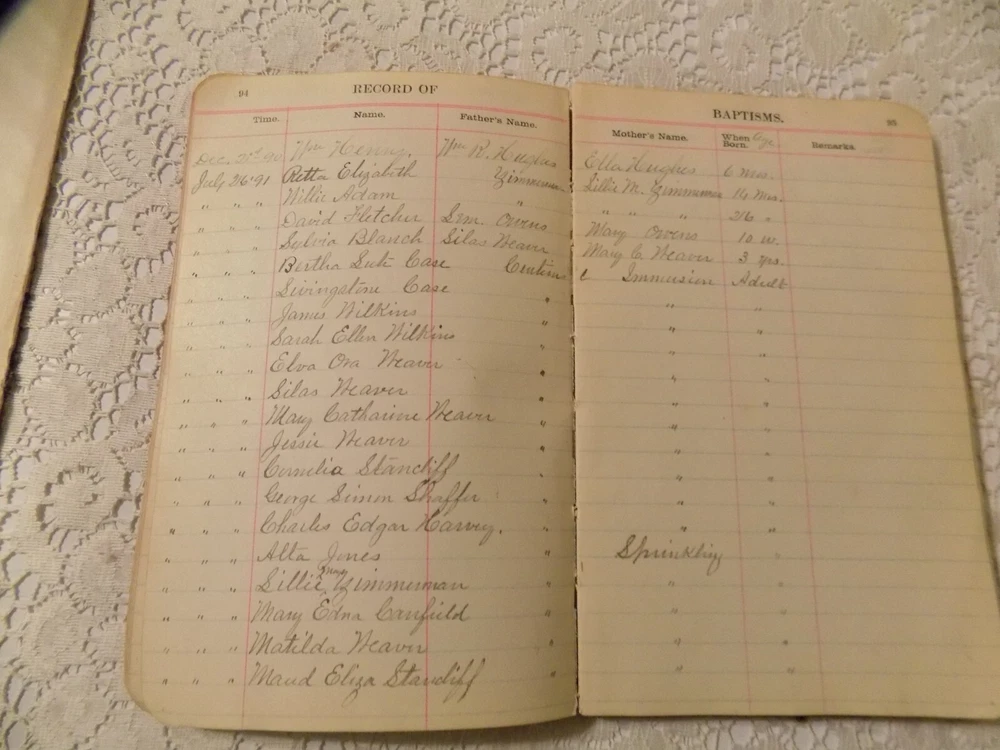 94 RECORD OF
BAPTISMS. 95
Time. Name. Father's Name. Mother's Name. When Born. Age Remarks.
Dec. 21st 90 Wm Henry Wm R. Hughes Ella Hughes 6 mos.
July 26 '91 Retta Elizabeth Zimmerman Lillie M. Zimmerman 14 Mos.
" " " Willie Adam " " " "
" " " David Fletcher Owens Mary Owens 10 w.
" " " Sylvia Blanch Silas Weaver Mary C. Weaver 3 yrs.
" " " Bertha Case Immersion Adult
" " " Livingstone Case " " "
" " " James Wilkins " " "
" " " Sarah Ellen Wilkins " " "
" " " Elva Ora Weaver " " "
" " " Silas Weaver " " "
" " " Mary Catharine Weaver " " "
" " " Jessie Weaver " " "
" " " Cornelia Stancliff " " "
" " " George Simon Shaffer " " "
" " " Charles Edgar Harvey. " " "
" " " Alta Jones " Sprinkling "
" " " Lillie May Zimmerman " " "
" " " Mary Edna Canfield " " "
" " " Matilda Weaver " " "
" " " Maud Eliza Stancliff " " "